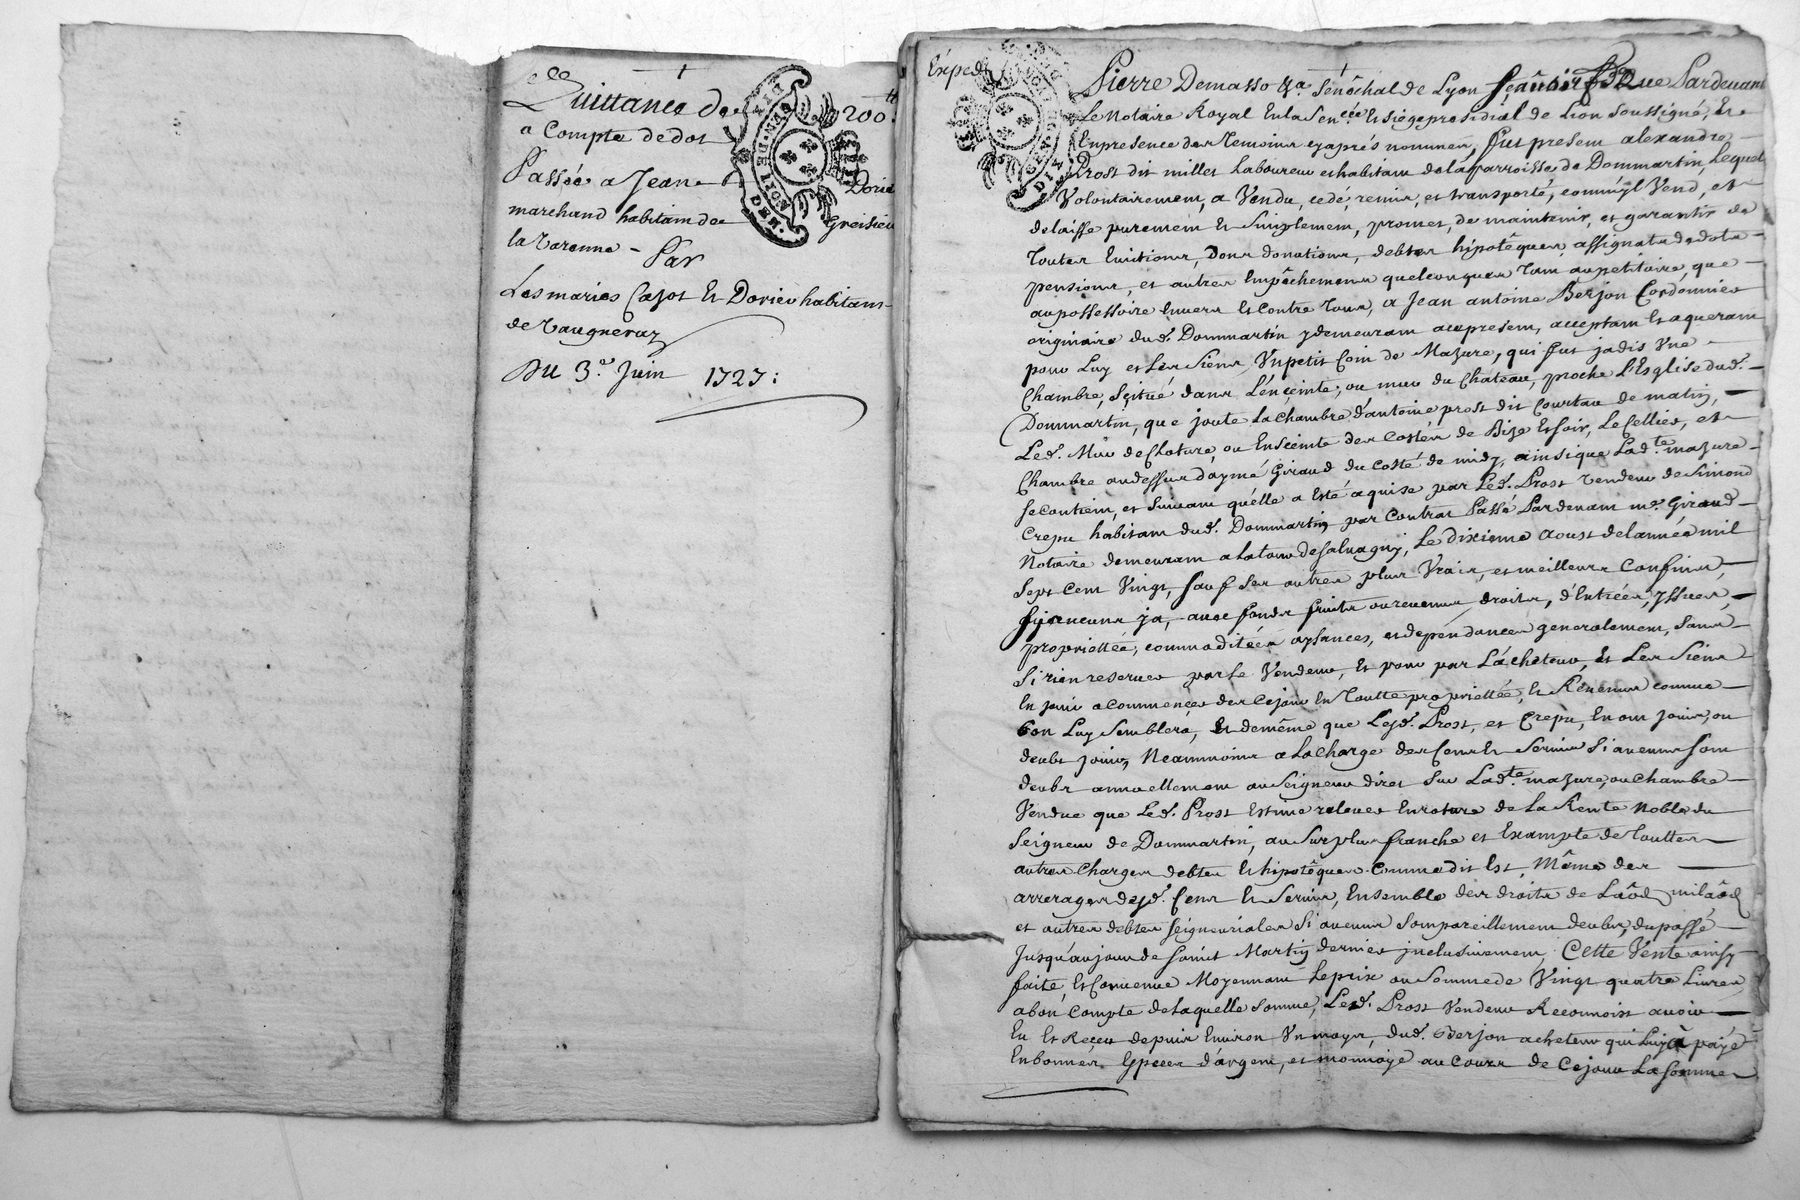 Quittance de 200tt
a Compte de dot
Passée a Jean Dorie
marchand habitant de Greisieu
la Varenne - Par
Les maries Cazot Et Dorieu habitans
de Vaugneray
Du 3e. Juin 1727:
GEN. DE LYON
Expedé
Pierre Demasso &a. Senêchal de Lyon sçavoir faisons que Pardevant
Le Notaire Royal En la Sencée Et siege presidial de Lion soussigné, Et
En presence des Temoins cy aprés nommés, fut present alexandre
Prost dit millet Laboureur et habitant de la parroisse de Dommartin, Lequel
Volontairement, a Vendu, cedé, remis, et transporté, comme jl Vend, et
delaisse purement Et Simplement, promet, de maintenir, et garantir de
Toutes Evictions, Dons donations, debtes hipotêques, assignats de dots
pensions, et autres Empêchemens quelconques Tant au petitoire, que
au possessoire Envers Et Contre Tous, a Jean antoine Berjon Cordonnier
originaire dud. Dommartin y demeurant acy present, acceptant Et aquerant
pour Luy et Les Siens, Un petit Coin de Mazure, qui fut jadis Une
Chambre, Scitué dans L'énceinte, ou mur du Chateau, proche L'Esglise dud.
Dommartin, que joute La chambre d'antoine prost dit Courtau de matin,
Led. Mur de Cloture, ou Enseinte des Costés de Bize Et soir, Le Cellier, et
Chambre au dessus d'aymé Giraud du Costé de midy, ainsi que Ladte. mazure
se contient, et Suivant qu'élle a Esté aquise par Led. Prost Vendeur de Simond
Crepu habitant dud. Dommartin, par Contrat Passé Pardevant me. Giraud
Notaire demeurant a la tour de Salvagny, Le dixieme aoust de l'année mil
Sept Cent Vingt, sauf ses autres plus Vrais, et meilleurs Confins,
sy aucuns y a, avec fonds fruits ou revenus droits, d'Entrées, yssues,
propriettés, commoditées aysances, et dépendances generalement, Sans
Si rien reserver par Le Vendeur, Et pour par L'acheteur, et Les Siens
En jouir a Commencer des Ce jour En Toutte propriettée, Et Revenus comme
bon Luy Semblera, Et de même que Lesd. Prost, et Crepu, En ont joui, ou
deubt jouir, Neanmoins a La charge des Cens Et Servis Si aucuns sont
deubs annuellement au Seigneur direct Sur Ladte. mazure, ou chambre
Vendue que Led. Prost Estime relever En roture de La Rente Noble du
Seigneur de Dommartin, au Surplus franche et Exampte de Touttes
autres Charges debtes Et hipotêques Comme dit Est, Même des
arrerages desd. Cens Et Servis, Ensemble des droits de Laôd, milaôd
et autres debtes seigneuriales Si aucuns Sont pareillement deubs, du passé
Jusqu'au jour de saint Martin dernier inclusivement, Cette Vente ainsy
faite, Et Convenue Moyennant Le prix ou Somme de Vingt quatre Livres,
a bon Compte de Laquelle Somme, Led. Prost Vendeur Reconnoist avoir
Eu Et Reçeu depuis Environ Un mays, dud. Berjon acheteur qui Luy à payé
En bonnes Espeçes d'argent, et monnoye au Cours de Ce jour La Somme